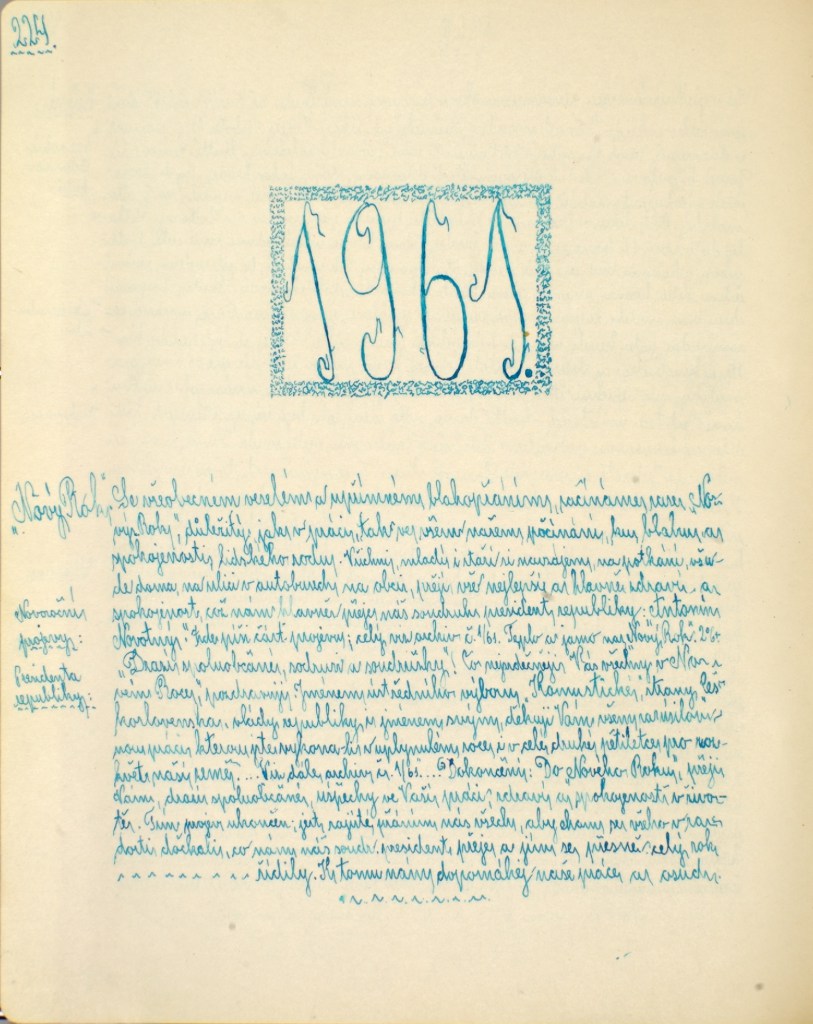 224.
1961.
"Nový Rok".
Se všeobecném veselém a upřímném blahopřáním, začínáme zase "No-
vý Rok", důležitý, jak v práci, tak ve všem našem počínání, ku blahu a
spokojenosti lidského rodu. Všichni, mladý i staří si navzájem, na potkání, vša-
de doma, na ulici v autobuseh, na obci, přejí vše nejlepší a hlavně zdraví a
spokojenost, což nám hlavně přeje, náš soudruh president, republiky: Antonín
Novotný." Zde píši část projevu; celý viz archiv č. 1/61. Teplo a jasno na "Nový Rok". 2°6+
Novoroční
projevy:
Presidenta
republiky:
"Drazí spoluobčané, soudruzi a soudružky"! Co nejsrdečněji "Vás všechny" v No-
vém Roce", pozdravuji. Jménem ústředního výboru, "Komunistické, strany Čes-
koslovenska, vlády republiky, i jménem svým, děkuji Vám všem za úsilov-
nou práci, kterou jste vykonali v uplynulém roce, i v celé, druhé, pětiletce, pro roz-
květ, naší země. ... Viz dále, archiv č. 1/61. ... Dokončení: Do "Nového Roku", přeji
Vám, drazí spoluobčané, úspěchy ve Vaší práci, zdraví a spokojenosti v živo-
tě. Tím projev ukončen; jest, zajisté, přáním nás všech, aby chom se všeho v ra-
dosti dočkali, co nám náš soudr. president, přeje, a jím se přesně: celý rok,
řídily. K tomu nám, dopomáhej naše práce, a osud.